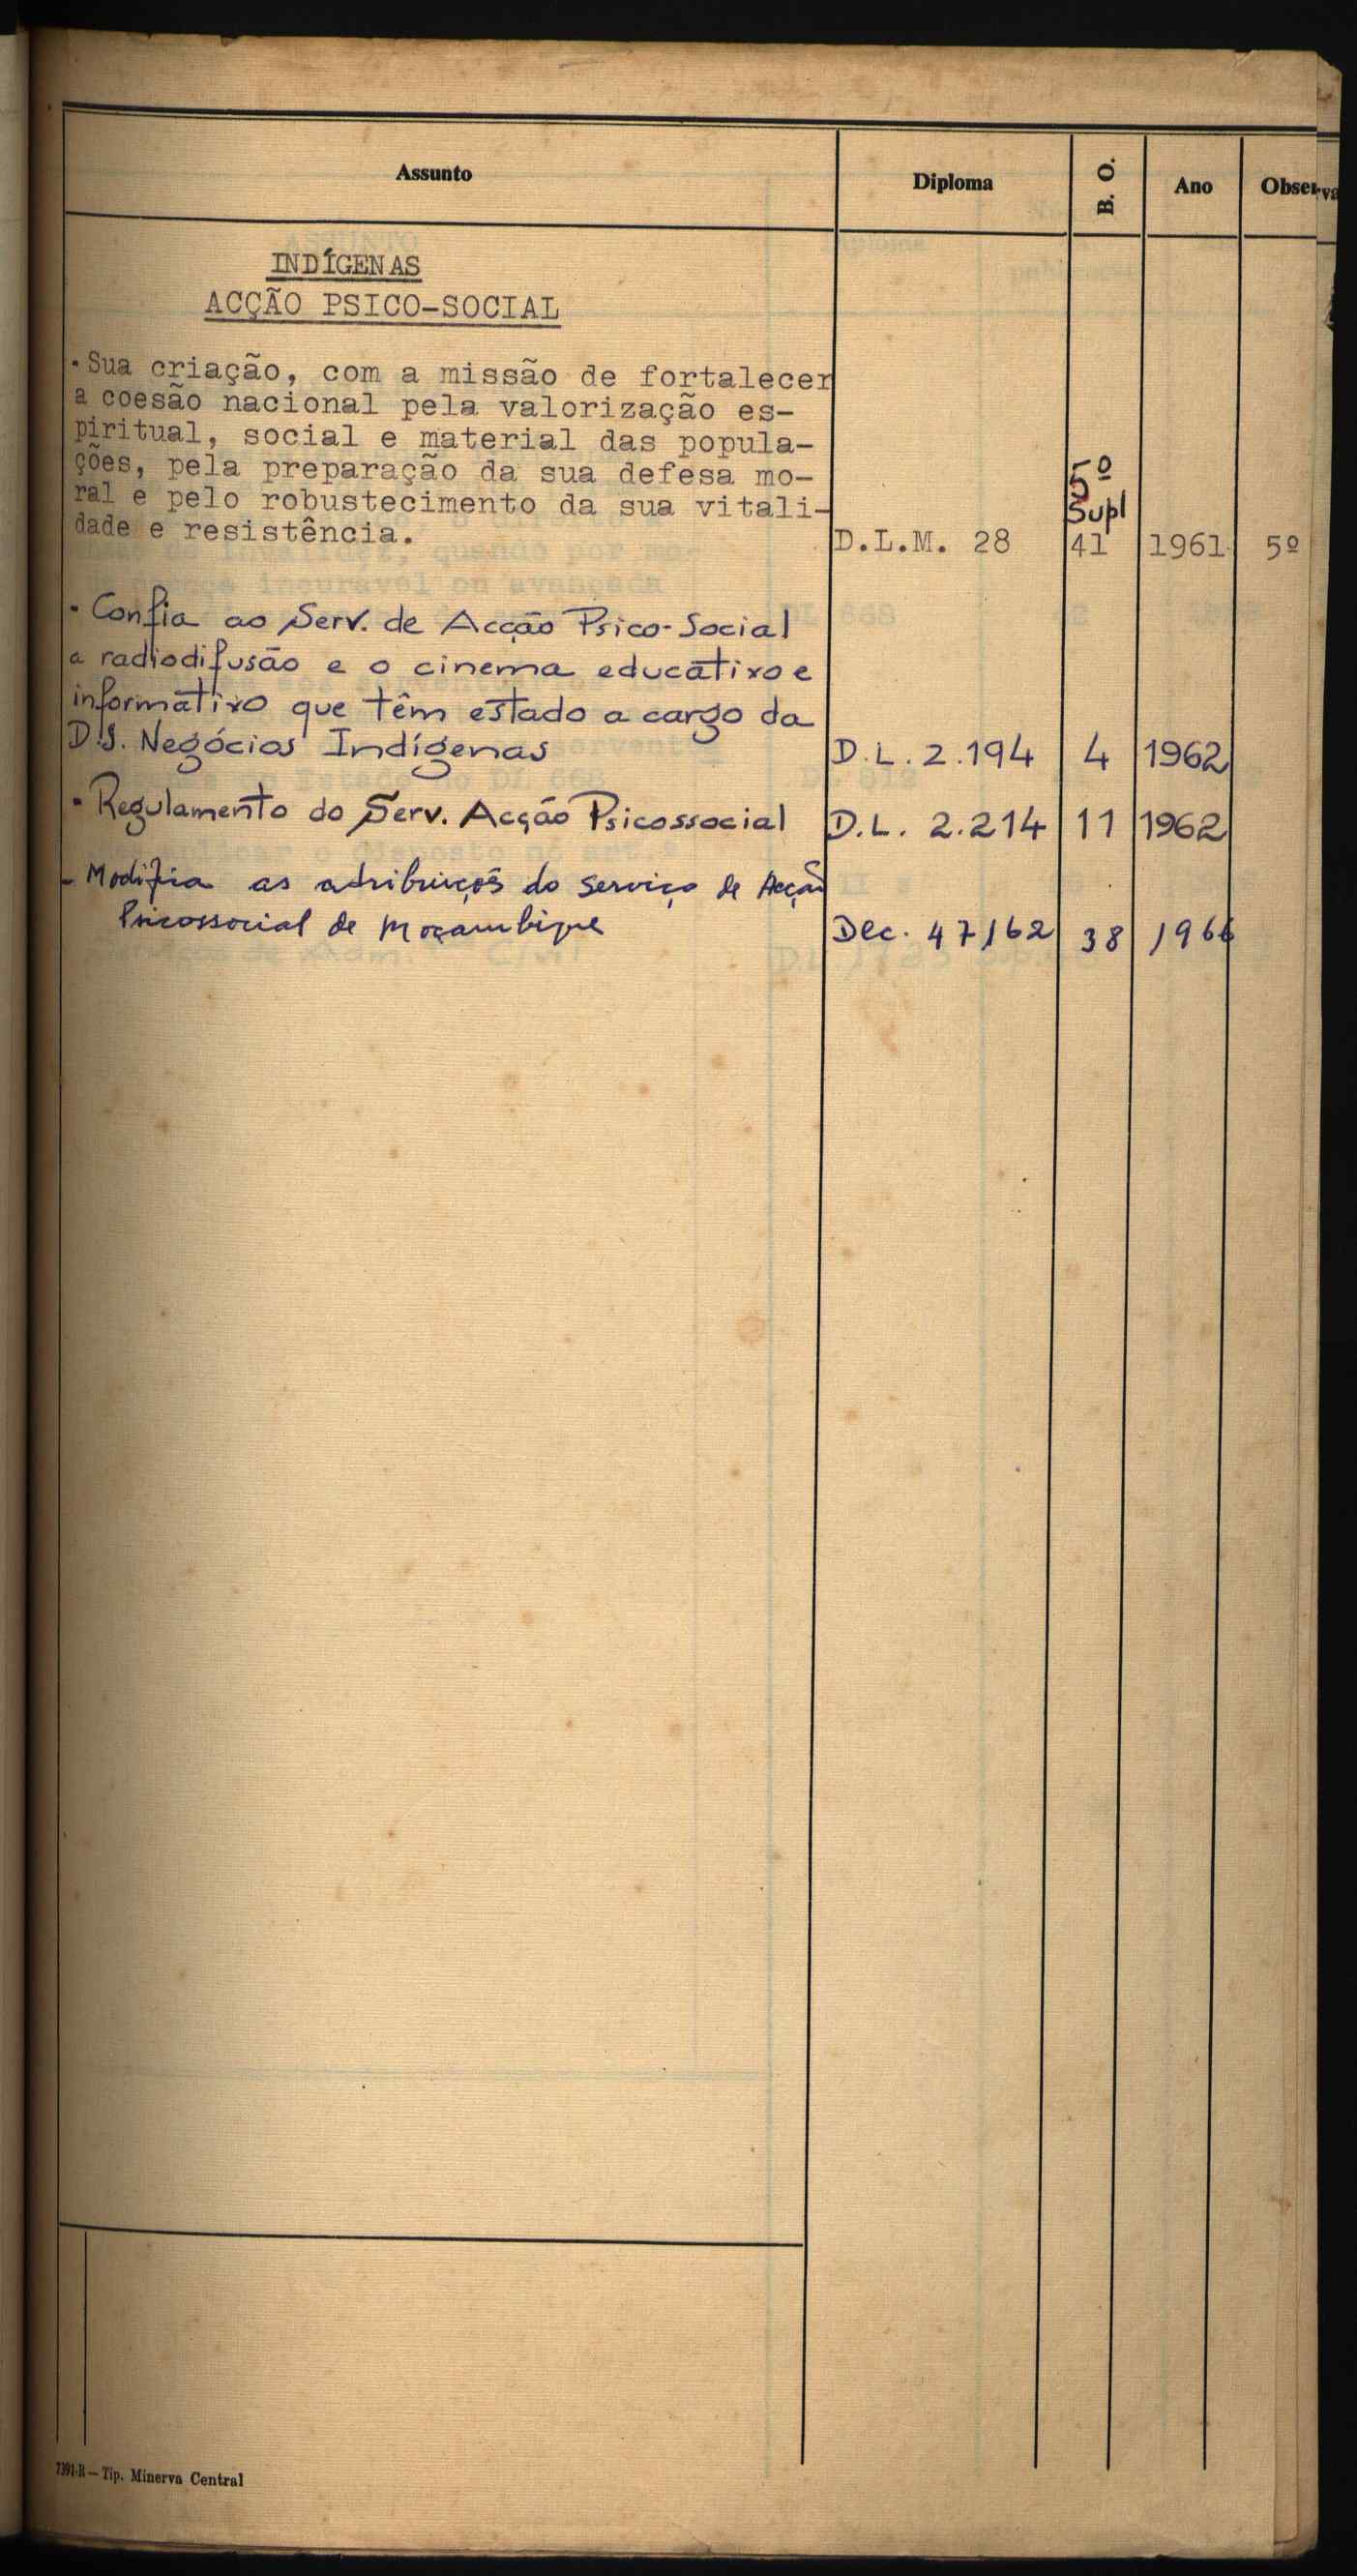 Assunto Diploma B. O. Ano Obser
INDÍGENAS
ACÇÃO PSICO-SOCIAL
·Sua criação, com a missão de fortalecer
a coesão nacional pela valorização es-
piritual, social e material das popula-
ções, pela preparação da sua defesa mo-
ral e pelo robustecimento da sua vitali-
5º
Supl
dade e resistência. D.L.M. 28 41 1961 5º
· Confia ao Serv. de Acção Psico-Social
a radiodifusão e o cinema educativo e
informativo que têm estado a cargo da
D.S. Negócios Indígenas D.L. 2.194 4 1962
· Regulamento do Serv. Acção Psicossocial D.L. 2.214 11 1962
- Modifica as atribuições do serviço de Acção
Psicossocial de Moçambique Dec. 47162 38 1966
7391-R — Tip. Minerva Central